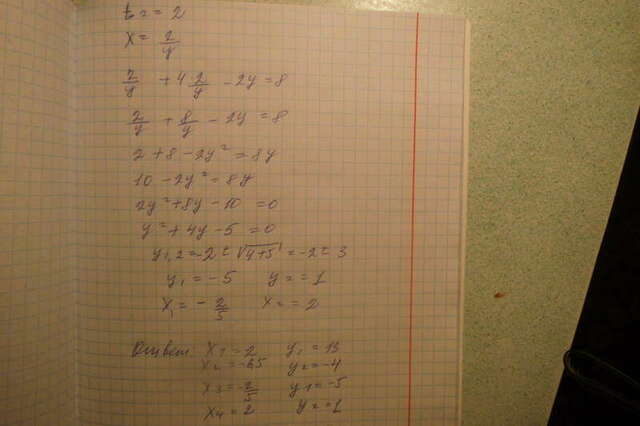 t₂ = 2
x = 2/y
2/y + 4 2/y - 2y = 8
2/y + 8/y - 2y = 8
2 + 8 - 2y² = 8y
10 - 2y² = 8y
2y² + 8y - 10 = 0
y² + 4y - 5 = 0
y₁,₂ = -2 ± √4+5 = -2 ± 3
y₁ = -5 y₂ = 1
x₁ = - 2/5 x₂ = 2
Ответ x₁ = 2 y₁ = 13
x₂ = -6,5 y₂ = -4
x₃ = -2/5 y₁ = -5
x₄ = 2 y₂ = 1